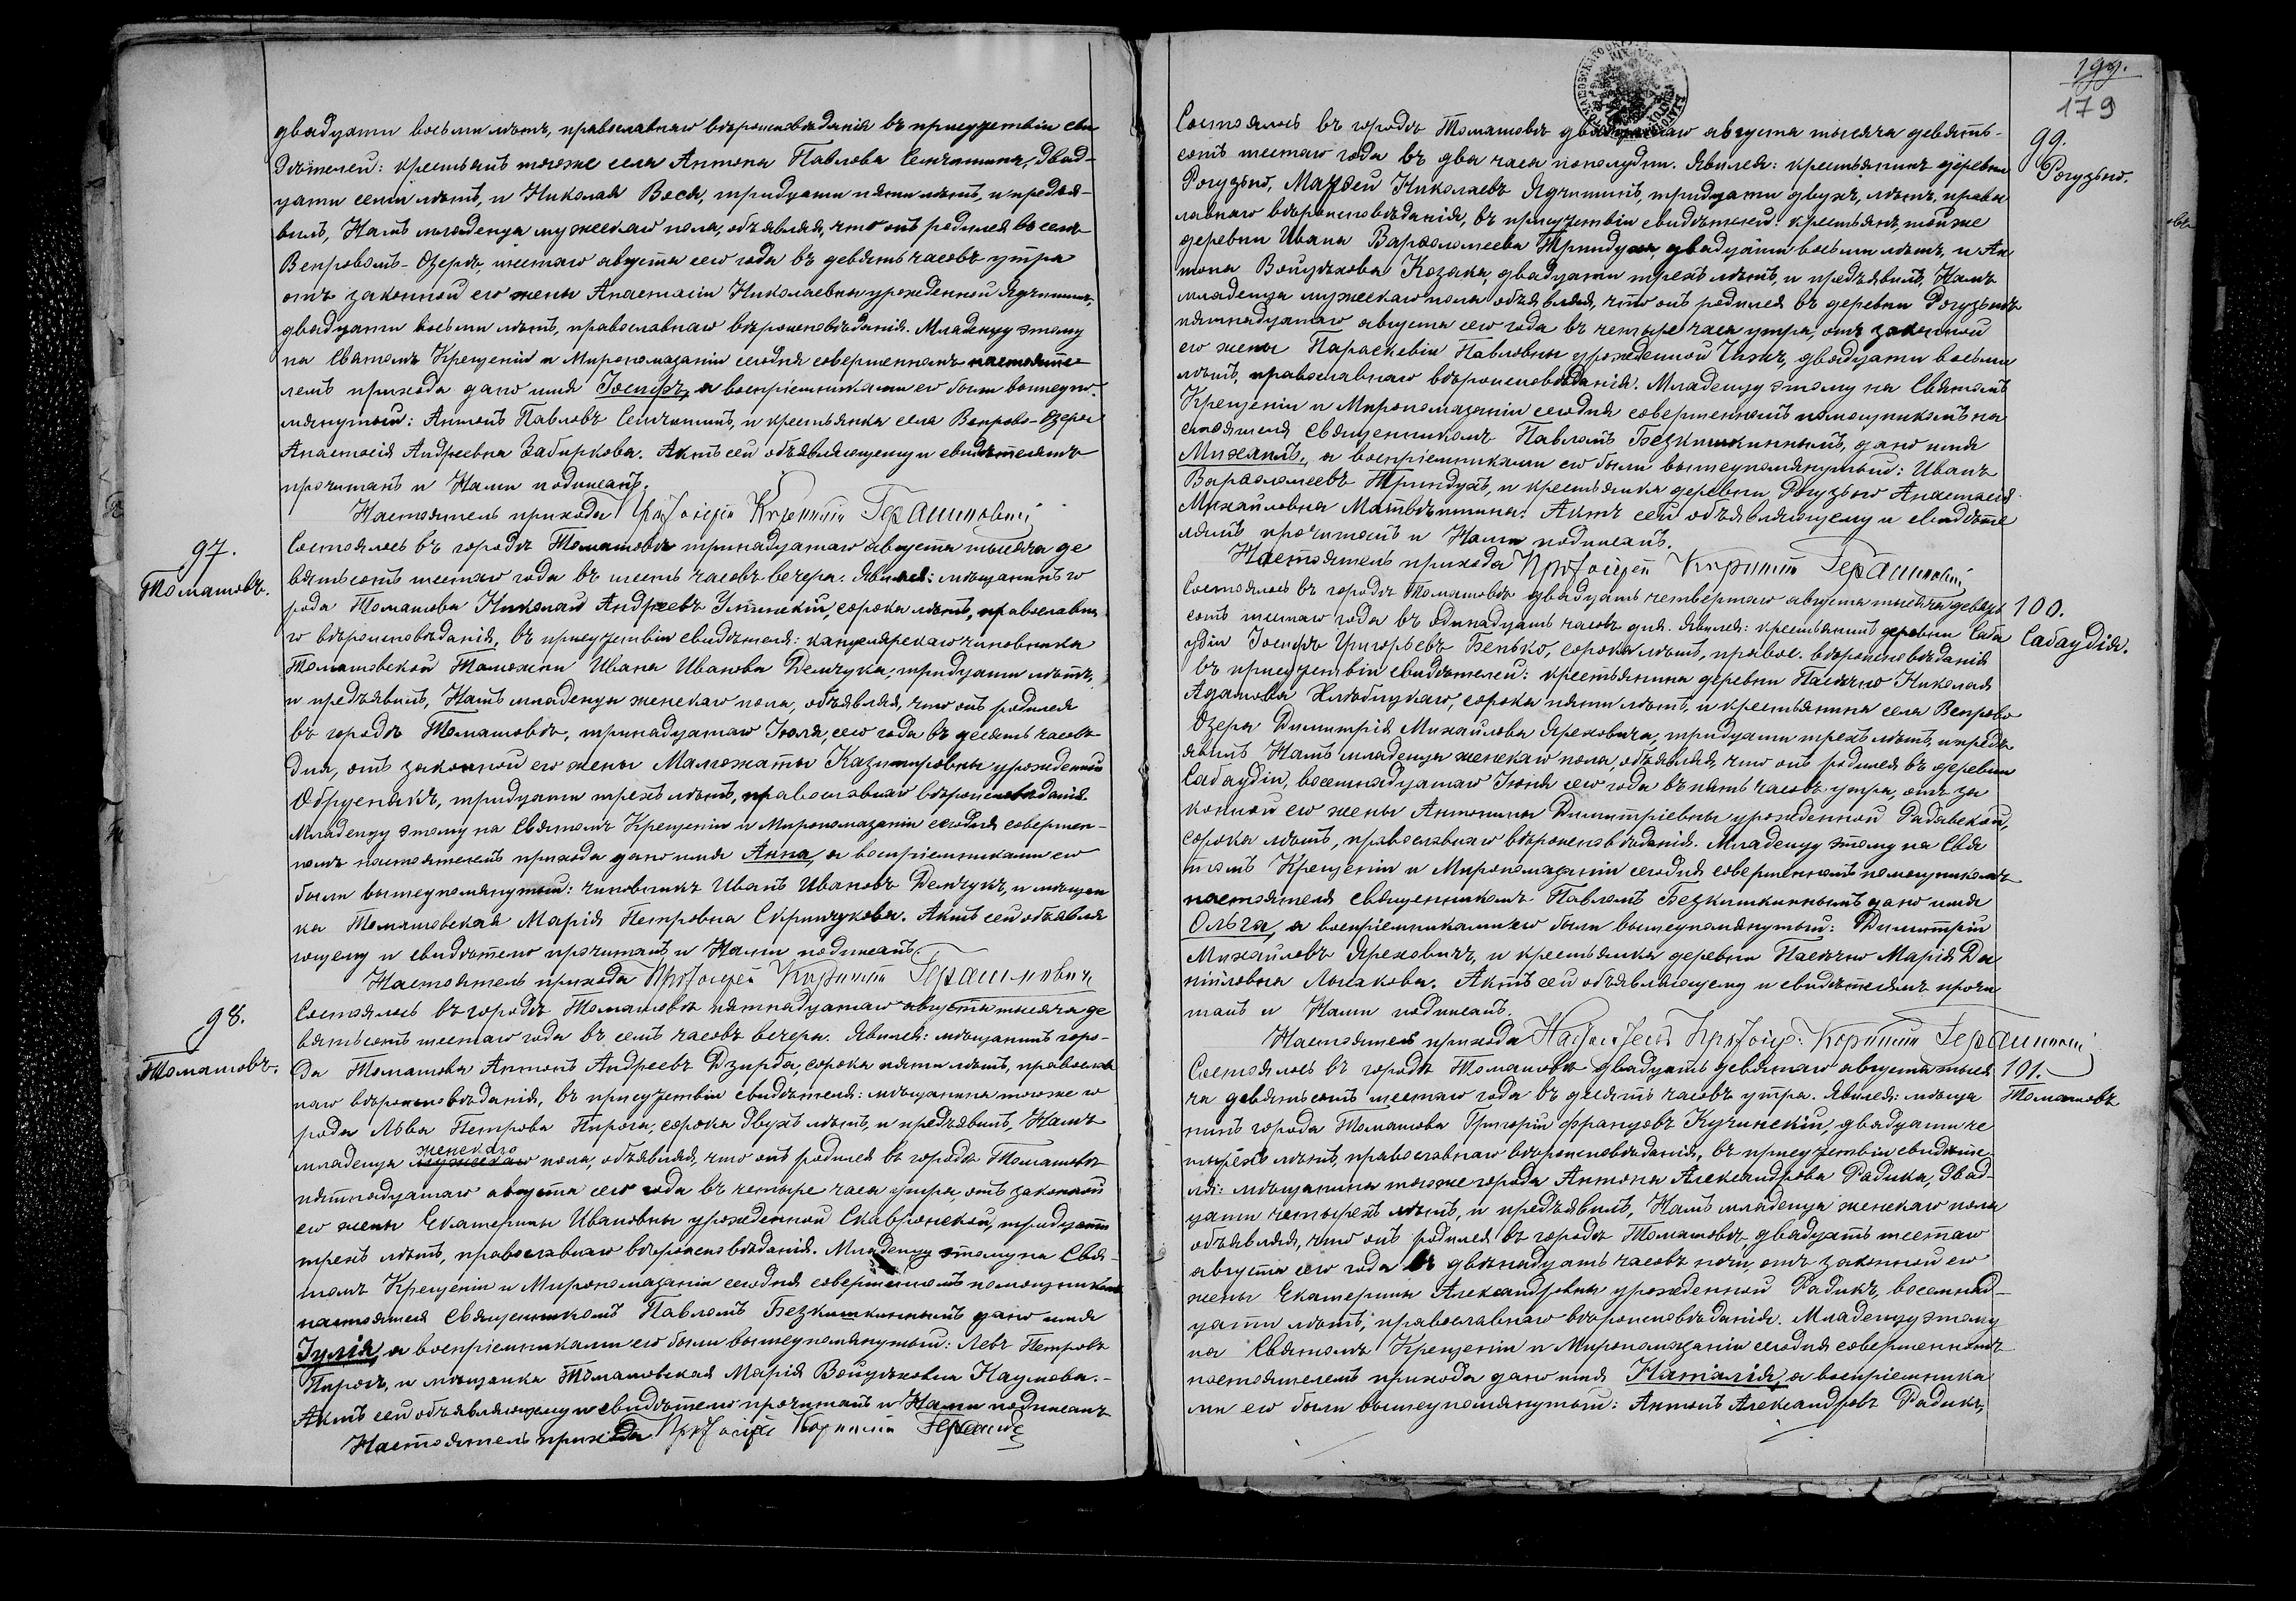 двадцати восьми лѣтъ, православнаго вѣроисповѣданія въ присутствіи сви
дѣтелей: крестьянъ тогоже села Антона Павлова Сенчишина, двад-
цати семи лѣтъ, и Николая Вося, тридцати пяти лѣтъ, и предъя-
вилъ, Намъ младенца мужескаго пола, объявляя, что онъ родился въ селѣ
Вепровомъ-Озерѣ, шестаго августа сего года въ девять часовъ утра
отъ законной его жены Анастасіи Николаевны урожденной Ядчишинъ,
двадцати восьми лѣтъ, православнаго вѣроисповѣданія. Младенцу этому
на Святомъ Крещеніи и Миропомазаніи сегодня совершенномъ настояте-
лемъ прихода дано имя Іосифъ, а воспріемниками его были вышеупо-
мянутый: Антонъ Павловъ Сенчишинъ, и крестьянка села Вепрово-Озеро
Анастасія Андреевна Забиркова. Актъ сей объявляющему и свидѣтелямъ
прочитанъ и Нами подписанъ.
Настоятель прихода Протоіерей Корнилій Герашиновичъ
97.
Томашовъ.
Состоялось въ городѣ Томашовѣ тринадцатаго августа тысяча де
вятьсотъ шестаго года въ шесть часовъ вечера. Явился: мѣщанинъ го
рода Томашова Николай Андреевъ Устинскій, сорока лѣтъ, православна
го вѣроисповѣданія, въ присутствіи свидѣтеля: канцелярскаго чиновника
Томашовской Таможни Ивана Иванова Демчука, тридцати лѣтъ,
и предъявилъ, Намъ младенца женскаго пола, объявляя, что онъ родился
въ городѣ Томашовѣ, тринадцатаго Іюля, сего года въ десять часовъ
дня, отъ законной его жены Малгожаты Казимировны урожденной
Обруснякъ, тридцати трехъ лѣтъ, православнаго вѣроисповѣданія.
Младенцу этому на Святомъ Крещеніи и Миропомазаніи сегодня совершен-
номъ настоятелемъ прихода дано имя Анна, а воспріемниками его
были вышеупомянутый: чиновникъ Иванъ Ивановъ Демчукъ, и мѣщан
ка Томашовская Марія Петровна Скрипчукова. Актъ сей объявля
ющему и свидѣтелю прочитанъ и Нами подписанъ.
Настоятель прихода Протоіерей Корнилій Герашиновичъ
98.
Томашовъ.
Состоялось въ городѣ Томашовѣ пятнадцатаго августа тысяча де
вятьсотъ шестаго года въ семь часовъ вечера. Явился: мѣщанинъ горо-
да Томашова Антонъ Андреевъ Дзирба, сорока пяти лѣтъ, православ
наго вѣроисповѣданія, въ присутствіи свидѣтеля: мѣщанина тогоже го
рода Льва Петрова Пирога, сорока двухъ лѣтъ, и предъявилъ, Намъ
женскаго
младенца мужескаго пола, объявляя, что онъ родился въ городѣ Томашовѣ
пятнадцатаго августа сего года въ четыре часа утра отъ законной
его жены Екатерины Ивановны урожденной Скавронской, тридцати
трехъ лѣтъ, православнаго вѣроисповѣданія. Младенцу этому на Свя-
томъ Крещеніи и Миропомазаніи сегодня совершенномъ помощникомъ
настоятеля священникомъ Павломъ Безкишкиннымъ дано имя
Іулія, а воспріемниками его были вышеупомянутый: Левъ Петровъ
Пирогъ, и мѣщанка Томашовская Марія Войцѣховна Наумова.-
Актъ сей объявляющему и свидѣтелю прочитанъ и Нами подписанъ
Настоятель прихода Протоіерей Корнилій Герашинов
199.
179
99.
Рогузьно.
Состоялось въ городѣ Томашовѣ двадцатаго августа тысяча девять-
сотъ шестаго года въ два часа пополудни. Явился: крестьянинъ деревни
Рогузьно, Матѳей Николаевъ Ядчишинъ, тридцати двухъ, лѣтъ, правос
лавнаго вѣроисповѣданія, въ присутствіи свидѣтелей: крестьянъ, тойже
деревни Ивана Варѳоломеева Триндуха, двадцати восьми лѣтъ, и Ан
тона Войцѣхова Козака, двадцати трехъ лѣтъ, и предъявилъ, Намъ
младенца мужескаго пола объявляя, что онъ родился въ деревни Рогузьнѣ
пятнадцатаго августа сего года въ четыре часа утра, отъ законной
его жены Параскевіи Павловны урожденной Чижъ, двадцати восьми
лѣтъ, православнаго вѣроисповѣданія. Младенцу этому на Святомъ
Крещеніи и Миропомазаніи сегодня совершенномъ помощникомъ на
стоятеля Священникомъ Павломъ Безкишкиннымъ, дано имя
Михаилъ, а воспріемниками его были вышеупомянутый: Иванъ
Варѳоломеевъ Триндухъ, и крестьянка деревни, Рогузьно Анастасія
Михайловна Матвѣишина. Актъ сей объявляющему и свидѣте
лямъ прочитанъ и Нами подписанъ.
Настоятель прихода Протоіерей Корнилій Герашиновичъ
100.
Сабаудія.
Состоялось въ городѣ Томашовѣ двадцать четвертаго августа тысяча девять
сотъ шестаго года въ одинадцать часовъ дня. Явился: крестьянинъ деревни Саба
удіи Іосифъ Григорьевъ Бенько, сорока лѣтъ, правос. вѣроисповѣданія
въ присутствіи свидѣтелей: крестьянина деревни Пасѣчно Николая
Адамова Хлѣбицкаго, сорока пяти лѣтъ, и крестьянина села Вепрово
Озера Димитрія Михайлова Яреховича, тридцати трехъ лѣтъ, и предъ
явилъ Намъ младенца женскаго пола, объявляя, что онъ родился въ деревни
Сабаудіи, восемнадцатаго Іюня сего года въ пять часовъ утра, отъ за
конной его жены Антонины Димитріевны урожденной Радавской,
сорока лѣтъ, православнаго вѣроисповѣданія. Младенцу этому на Свя
томъ Крещеніи и Миропомазаніи сегодня совершенномъ помощникомъ
настоятеля священникомъ Павломъ Безкишкиннымъ дано имя
Ольга, а воспріемниками его были вышеупомянутый: Димитрій
Михайловъ Яреховичъ, и крестьянка деревни Пасѣчно Марія Да
ніиловна Лысакова. Актъ сей объявляющему и свидѣтелямъ прочи
танъ и Нами подписанъ.
Настоятель прихода Настоятель Протоіер. Корнилій Герашиновичъ
101.
Томашовъ
Состоялось въ городѣ Томашовѣ двадцать девятаго августа тыся
ча девятьсотъ шестаго года въ десять часовъ утра. Явился: мѣща
нинъ города Томашова Григорій Францовъ Кучинскій, двадцати че
тырехъ лѣтъ, православнаго вѣроисповѣданія, въ присутствіи свидѣте-
ля: мѣщанина тогоже города Антона Александрова Радика, двад-
цати четырехъ лѣтъ, и предъявилъ, Намъ младенца женскаго пола
объявляя, что онъ родился въ городѣ Томашовѣ, двадцать шестаго
августа сего года въ двѣнадцать часовъ ночи, отъ законной его
жены Екатерины Александровны урожденной Радикъ, восемнад-
цати лѣтъ, православнаго вѣроисповѣданія. Младенцу этому
на Святомъ Крещеніи и Миропомазаніи сегодня совершенномъ
настоятелемъ прихода дано имя Наталія, а воспріемника
ми его были вышеупомянутый: Антонъ Александровъ Радикъ,